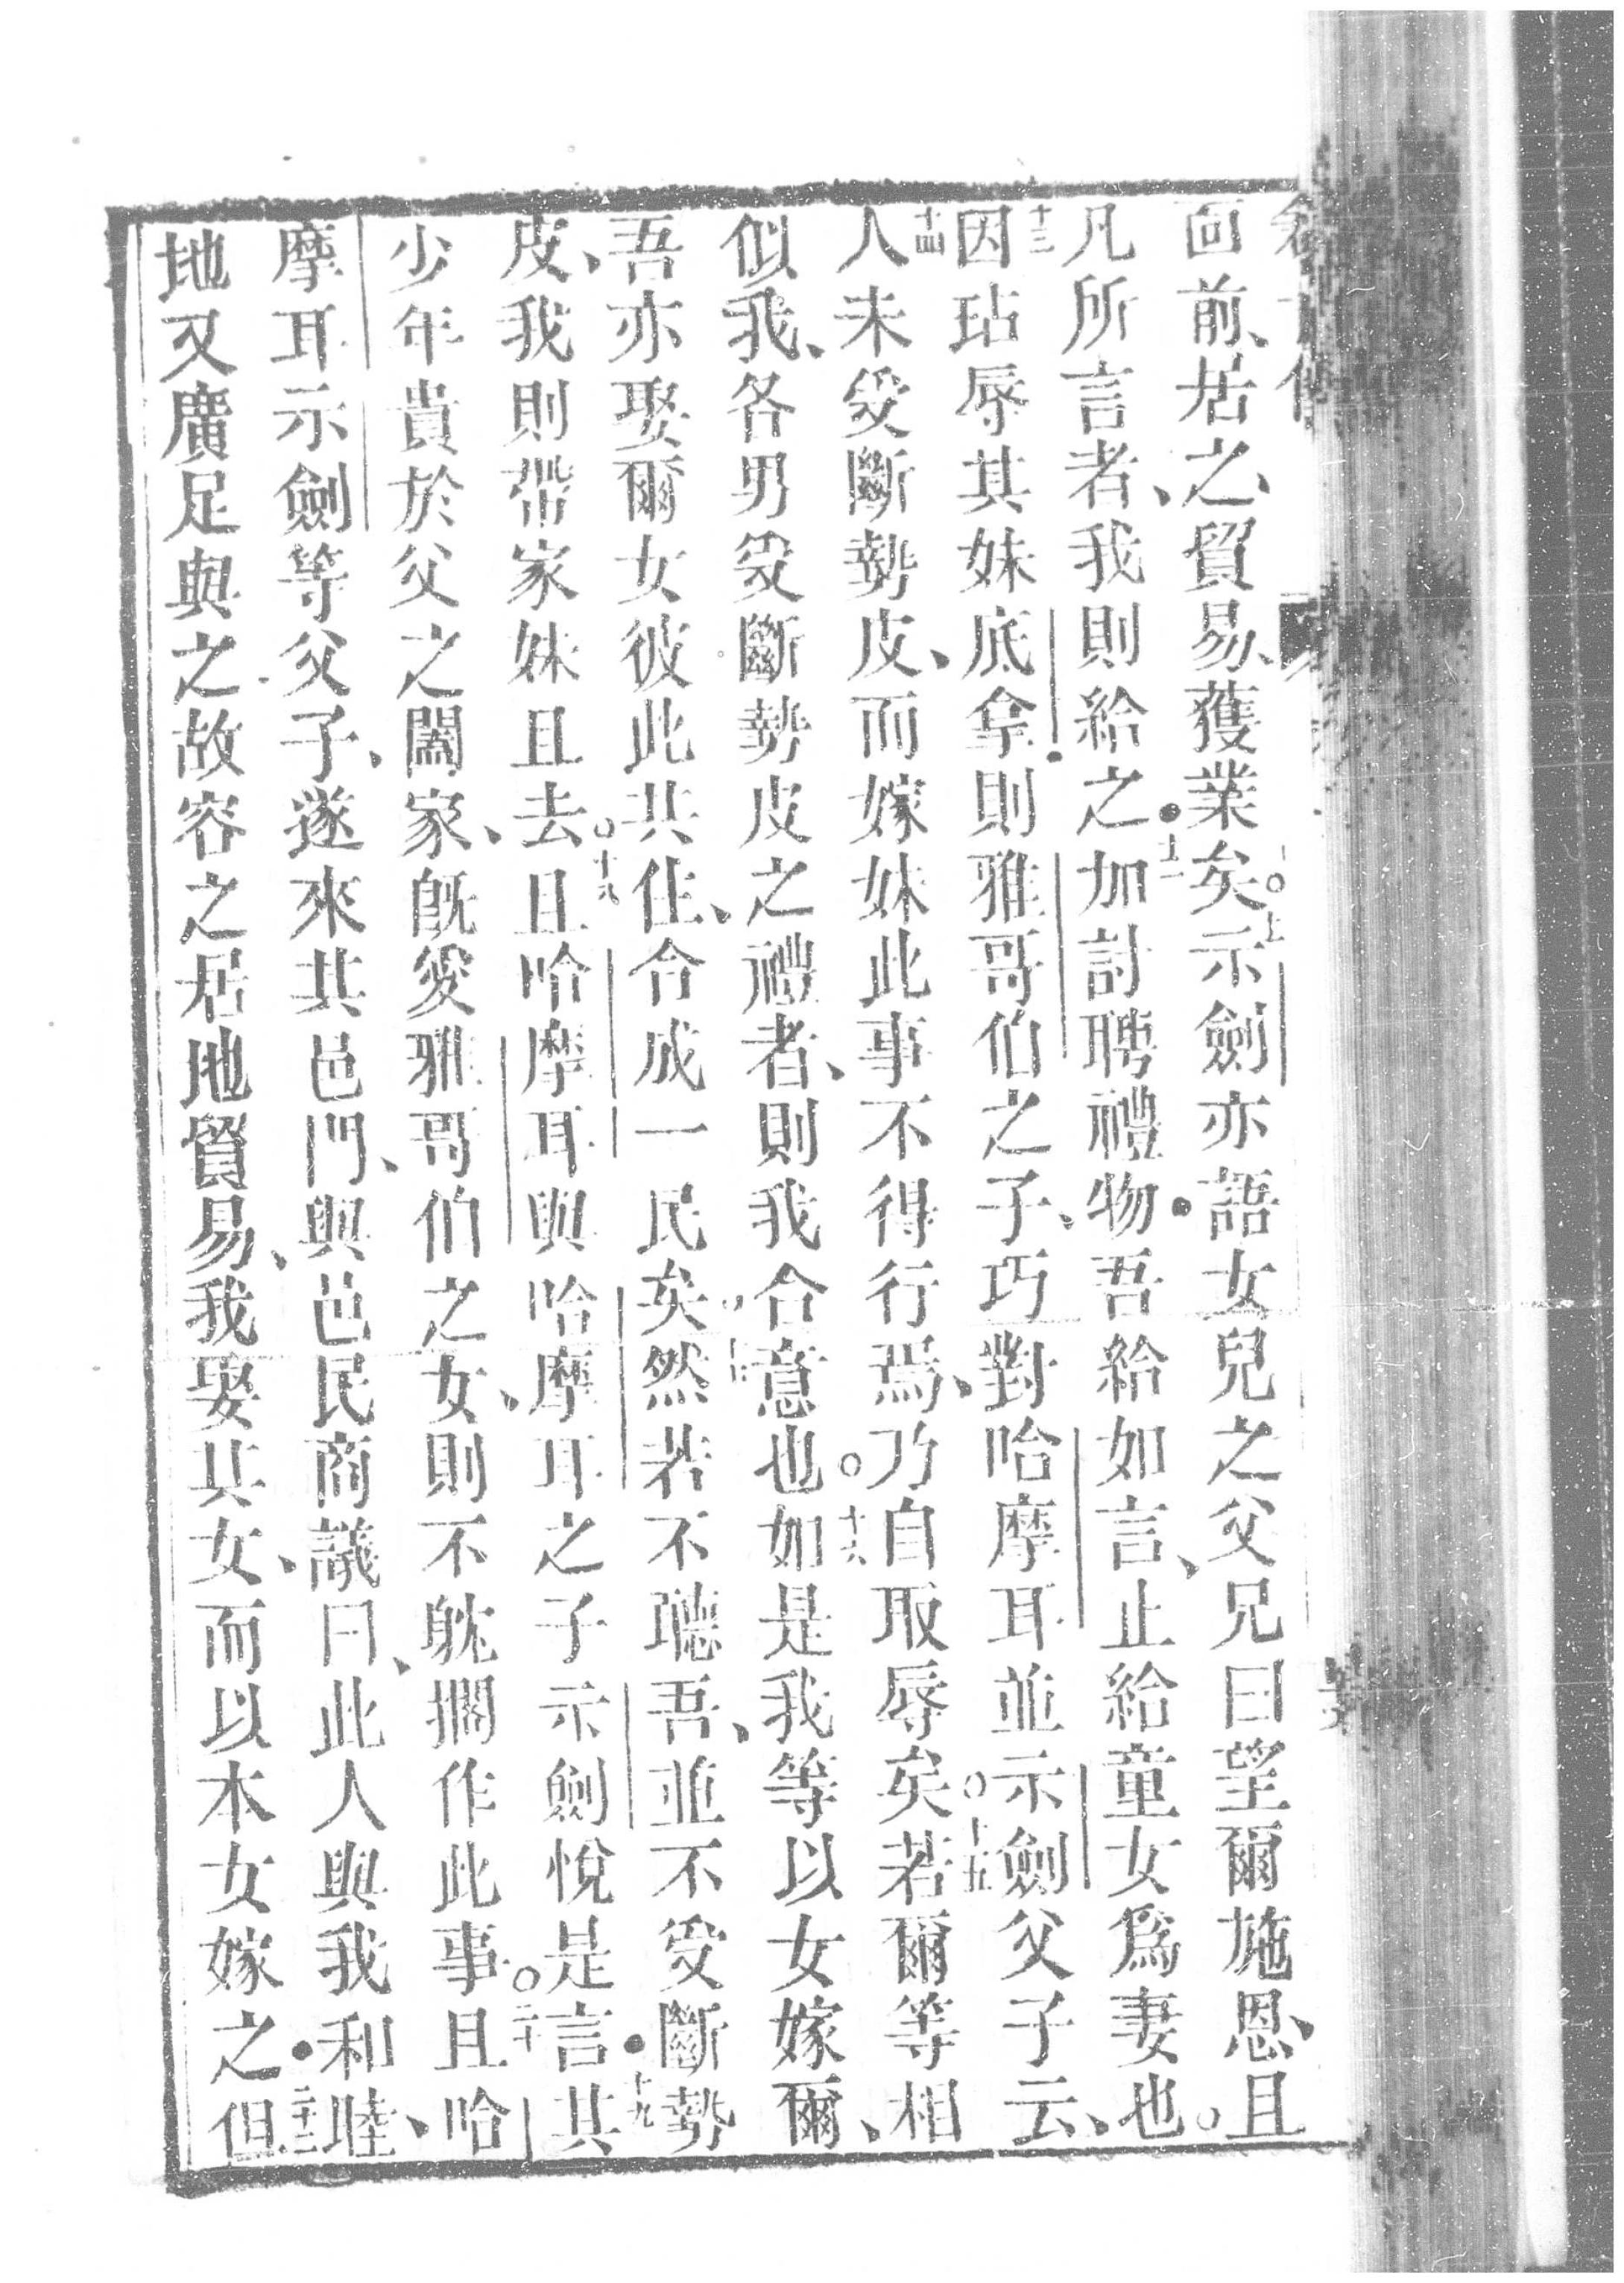 面前、居之、貿易、獲業矣。十一示劍亦語女兒之父兄曰望爾施恩、且
凡所言者、我則給之。十二加討聘禮物。吾給如言、止給童女爲妻也。
十三因玷辱其妹底拿。則雅哥伯之子、巧對哈摩耳並示劍父子云、
十四人未受斷勢皮、而嫁妹此事不得行焉、乃自取辱矣。十五若爾等相
似我、各男受斷勢皮之禮者、則我合意也。十六如是我等以女嫁爾、
吾亦娶爾女彼此共住、合成一民矣。十七然若不聽吾、並不受斷勢
皮、我則帶家妹且去。十八且哈摩耳與哈摩耳之子示劍悅是言。十九其
少年貴於父之闔家、旣愛雅哥伯之女、則不躭擱作此事。二十且哈
摩耳示劍等父子、遂來其邑門、與邑民商議曰、此人與我和睦、
地又廣足與之故容之居地貿易、我娶其女、而以本女嫁之。二十二但